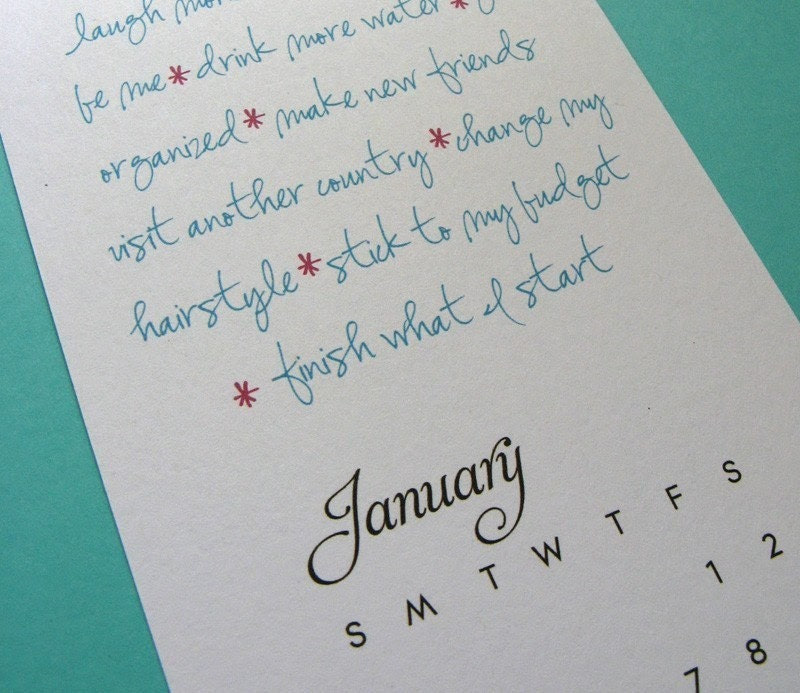 laugh more
be me * drink more water *
organized * make new friends
visit another country * change my
hairstyle * stick to my budget
* finish what I start
January
S M T W T F S
1 2
7 8